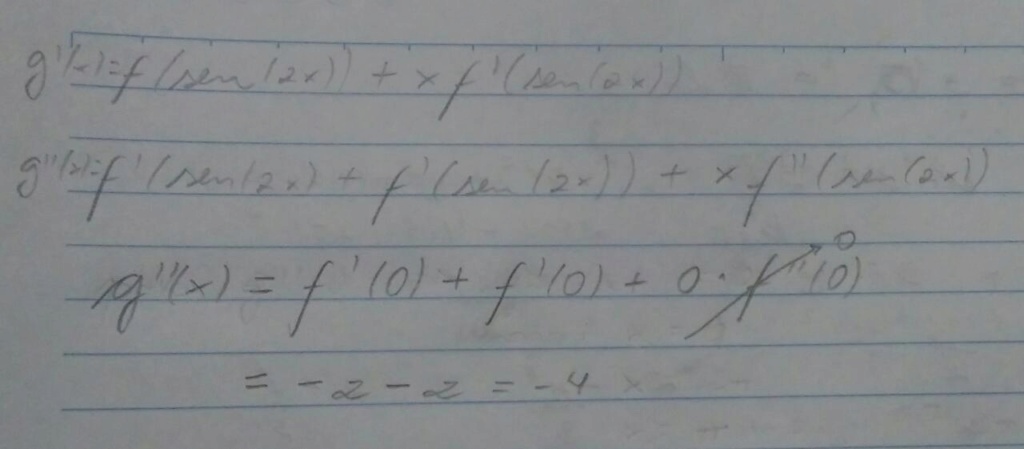 g'(x)=f(sen(2x)) + x f'(sen(2x))
g''(x)=f'(sen(2x) + f'(sen(2x)) + x f''(sen(2x))
g''(x) = f'(0) + f'(0) + 0 · f''(0) 0
= -2 - 2 = -4